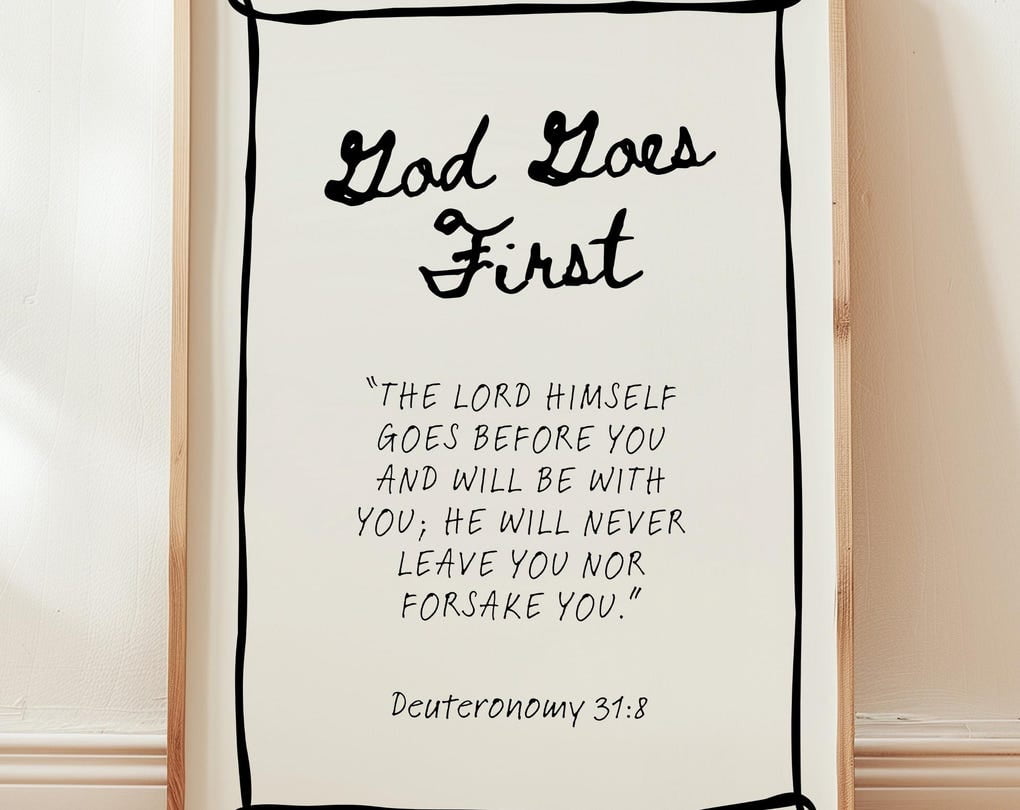 God Goes
First
"THE LORD HIMSELF
GOES BEFORE YOU
AND WILL BE WITH
YOU; HE WILL NEVER
LEAVE YOU NOR
FORSAKE YOU."
Deuteronomy 31:8